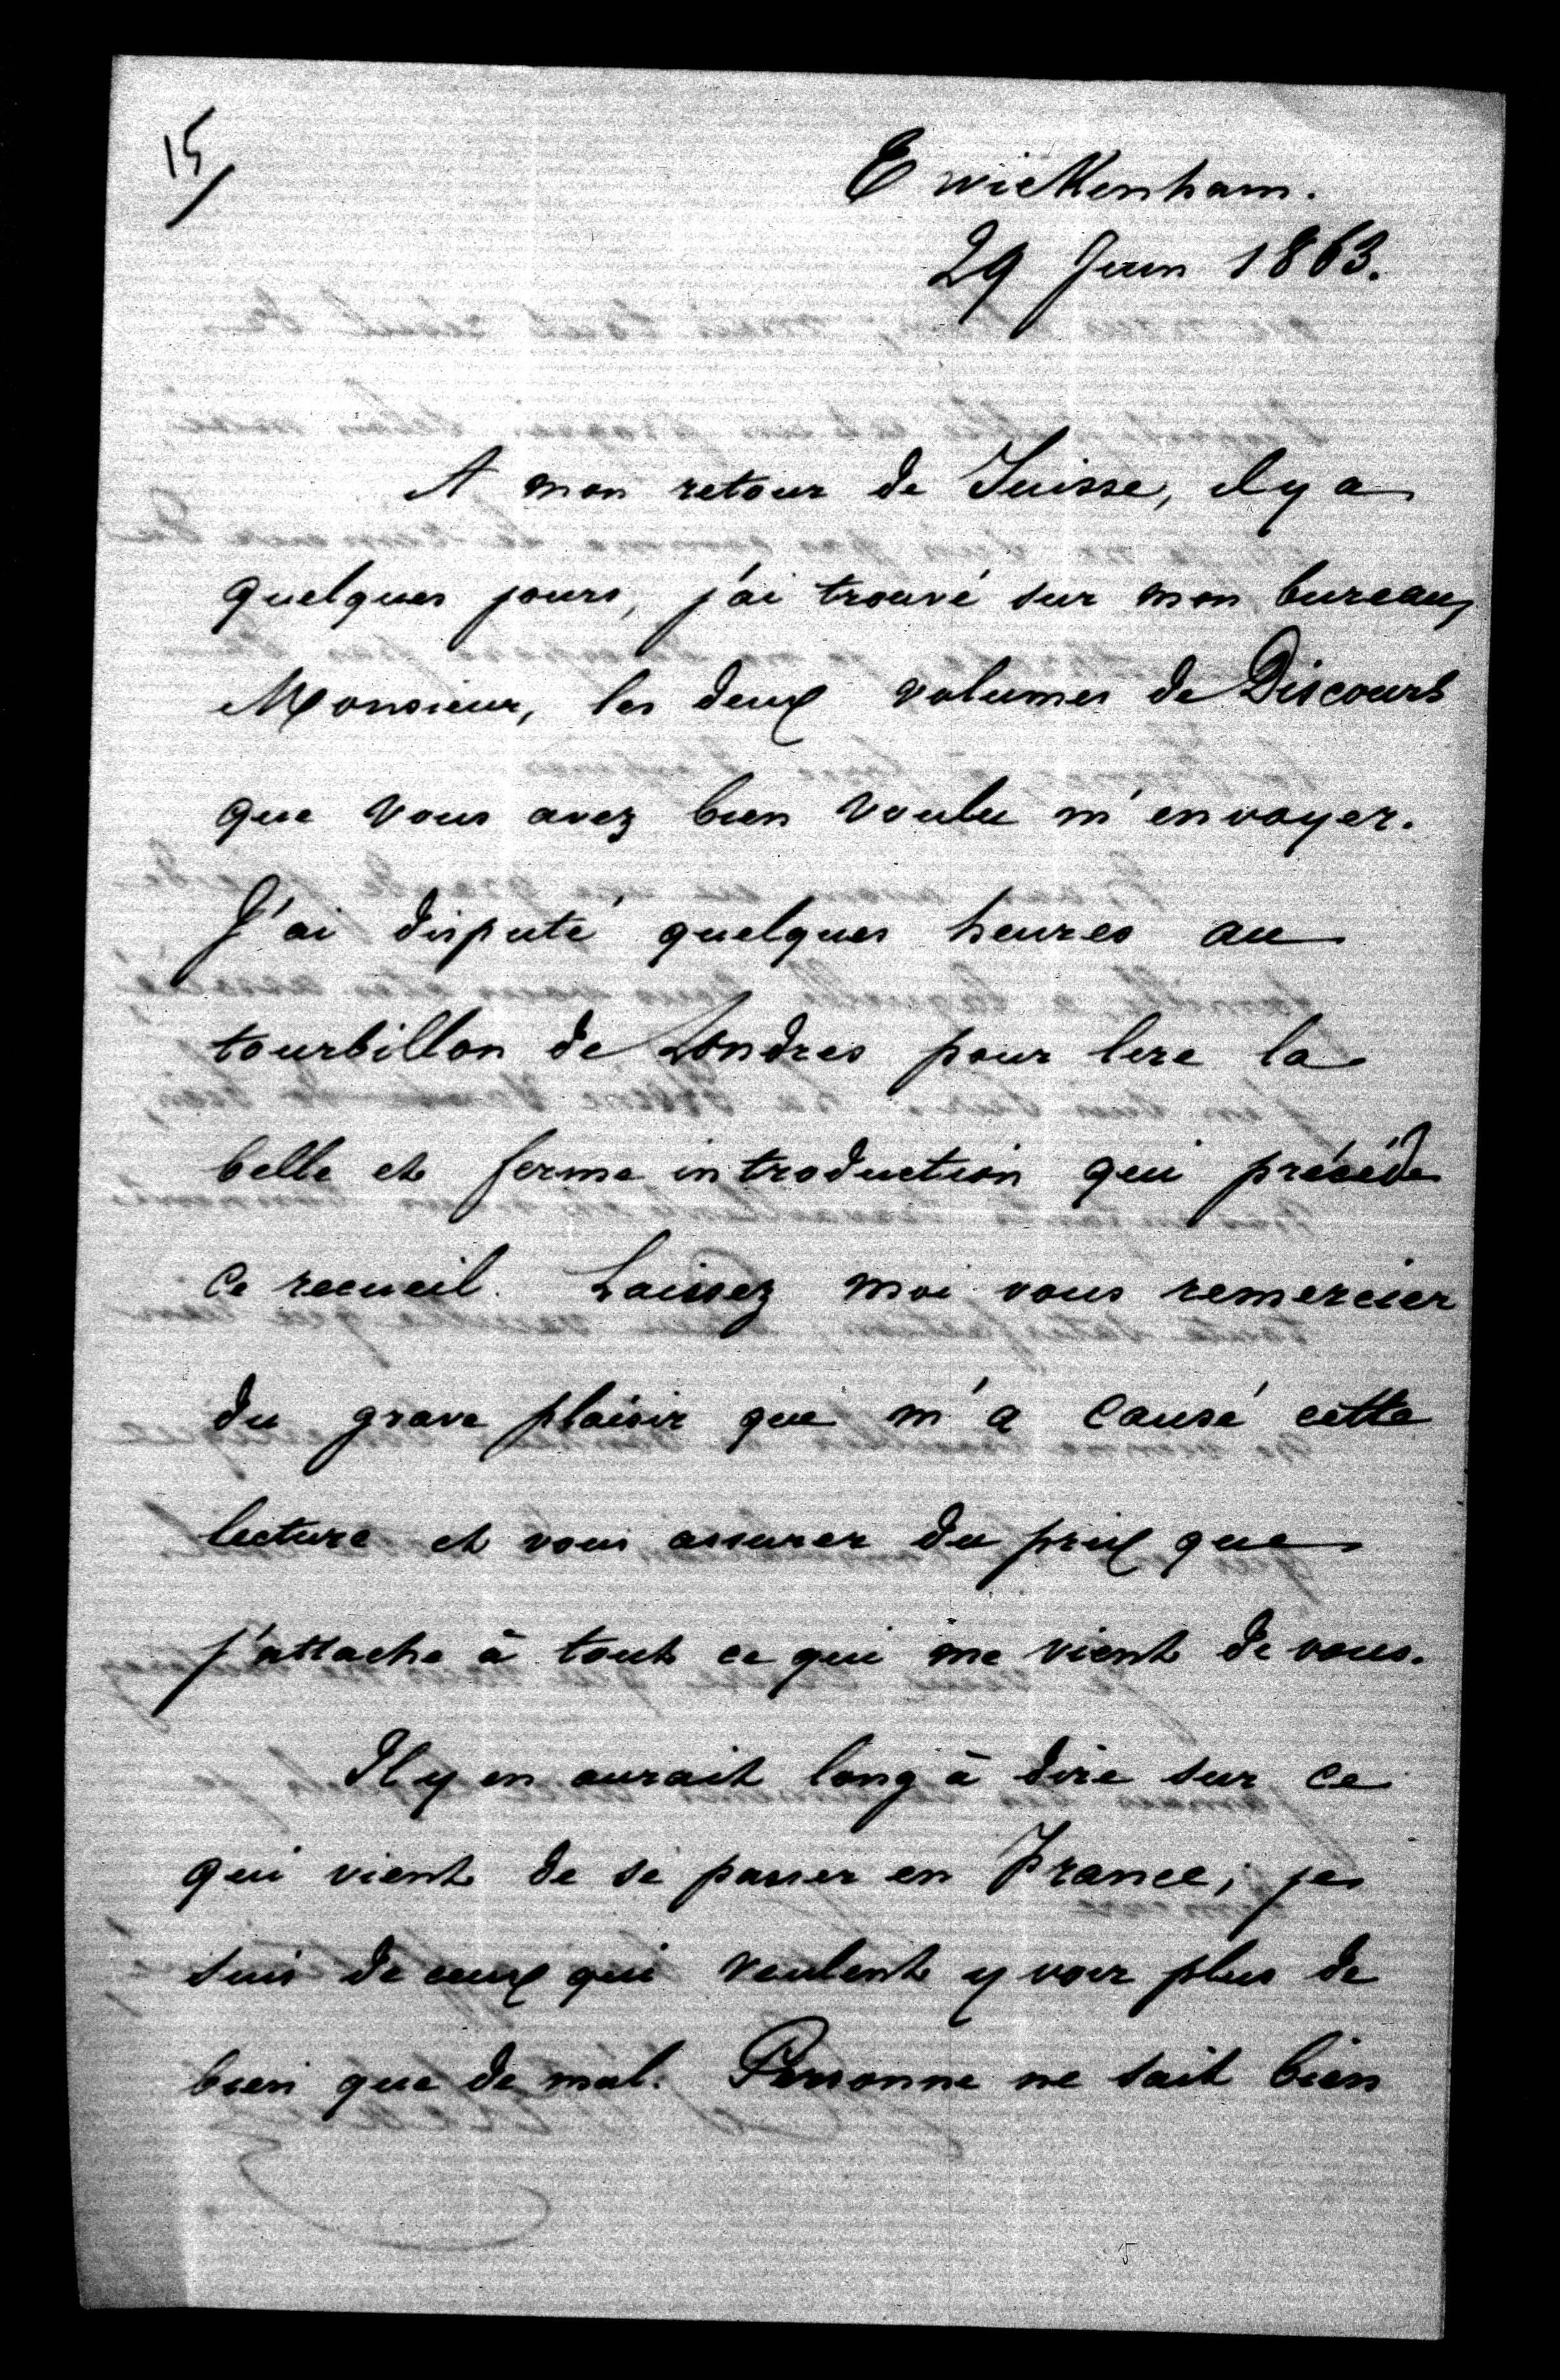 15/
Twickenham.
29 Juin 1863.
A mon retour de Suisse, il y a
quelques jours, j'ai trouvé sur mon bureau,
Monsieur, les deux volumes de Discours
que vous avez bien voulu m'envoyer.
J'ai disputé quelques heures au
tourbillon de Londres pour lire la
belle et ferme introduction qui précède
ce recueil. Laissez moi vous remercier
du grave plaisir que m'a causé cette
lecture et vous assurer du prix que
j'attache à tout ce qui me vient de vous.
Il y en aurait long à dire sur ce
qui vient de se passer en France; je
suis de ceux qui veulent y voir plus de
bien que de mal. Personne ne sait bien